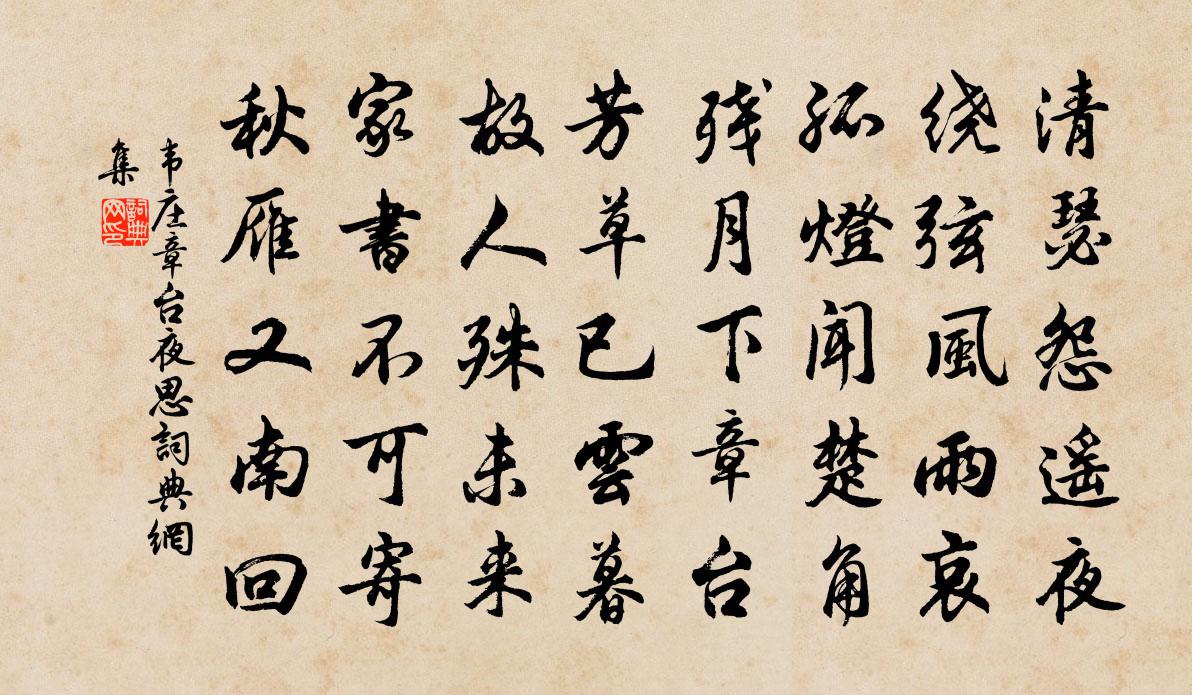 清瑟怨遥夜
绕弦風雨哀
孤燈闻楚角
残月下章台
芳草已雲暮
故人殊未来
家書不可寄
秋雁又南回
韦庄章台夜思詞典網
集
詞典網印